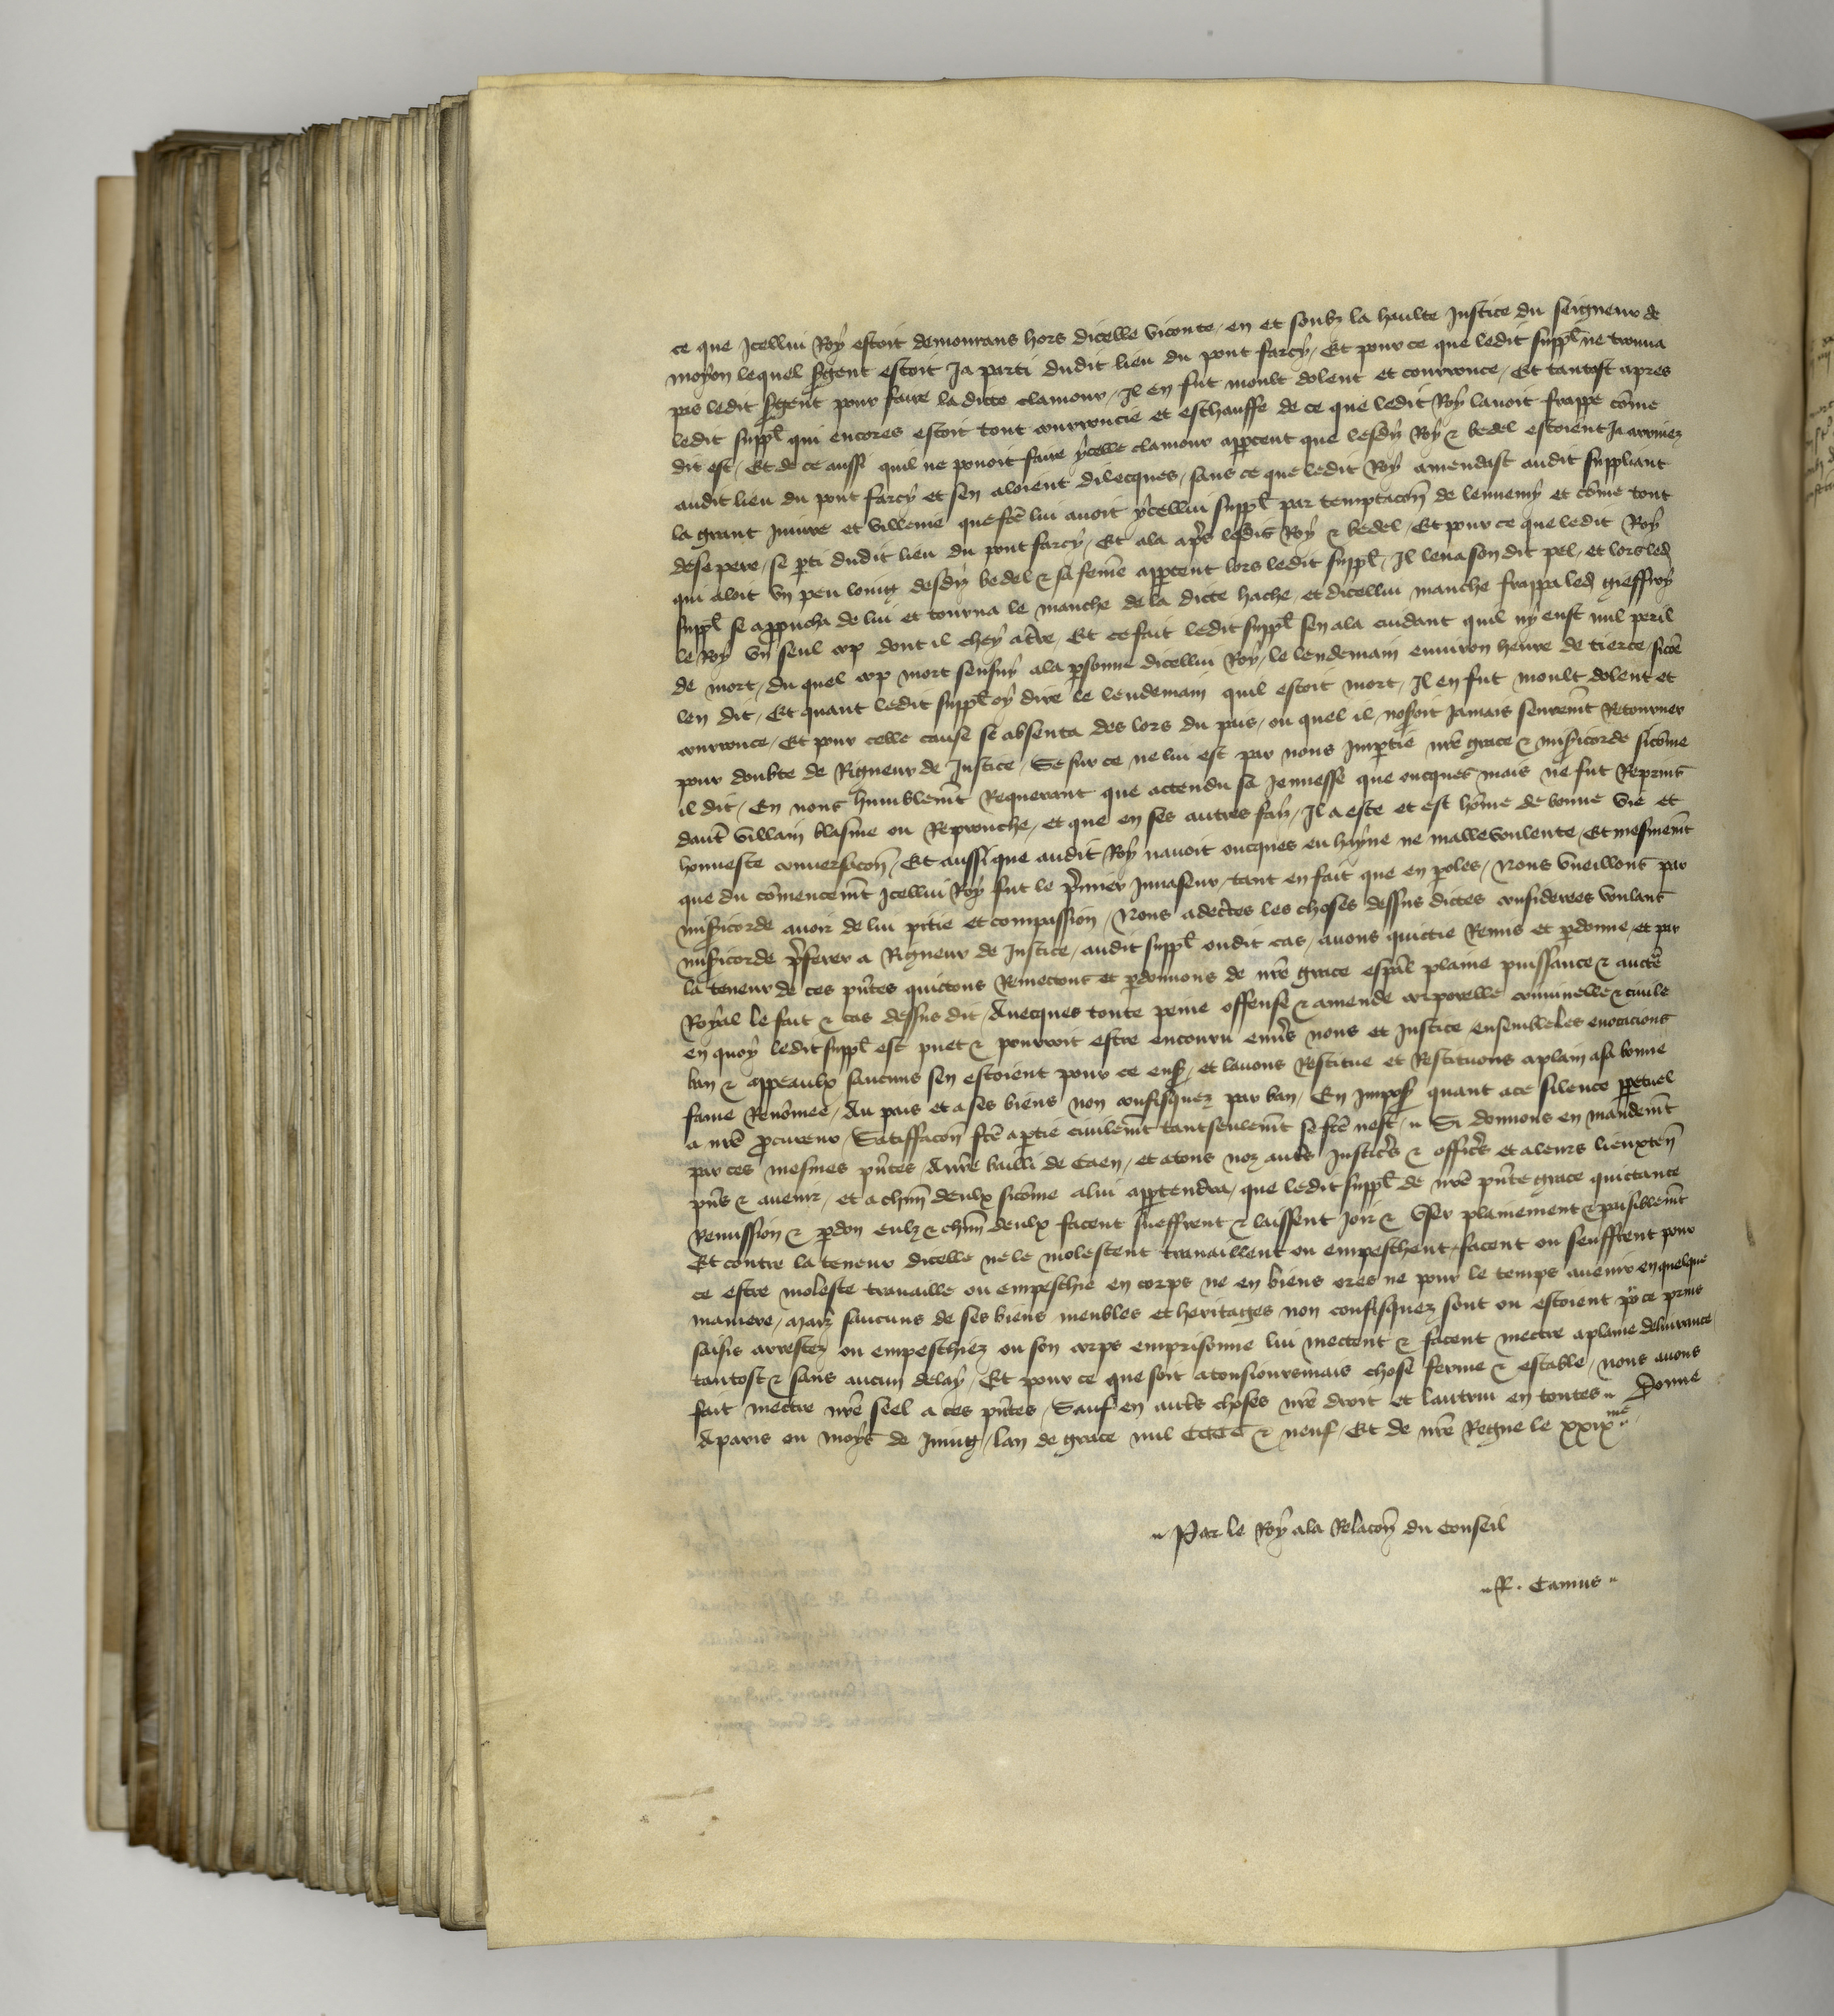 ce que Icellui Roy estoit demourans hors dicelle viconte / en et soubz la haulte Justice du seigneur de
moyon lequel sgent estoit Ja parti dudit lieu du pont farcy / Et pour ce que ledit suppl ne trouua
pas ledit sgent pour faire la dicte clamour / Il en fut moult dolent et courrouce / Et tantost apres
ledit suppl qui encores estoit tout courroucie et eschauffe de ce que ledit Roy lauoit frappe come
dit est / Et de ce aussi quil ne pouoit faire ycelle clamour appceut que lesdiz Roy & bedel estoient Ja arriuez
audit lieu du pont farcy et sen aloient dilecques / sans ce que ledit Roy amendast audit suppliant
la grant Iniure et villenie que fce lui auoit ycellui suppl par temptacon de lennemy et come tout
desepere / se pti dudit lieu du pont farcy / Et ala aps ledit Roy & bedel / Et pour ce que ledit Roy
qui aloit vn peu loing desdiz bedel & sa feme appceut lors ledit suppl / Il leua son dit pel / et lors led
suppl se approucha de lui et tourna le manche de la dicte hache / et dicellui manche frappa led gieffroy
le Roy vn seul cop dont il chey atre / Et ce fait ledit suppl sen ala cuidant quil ny eust nul peril
de mort / du quel cop mort sensuy ala psonne dicellui Roy / le lendemain enuiron heure de tierce / sicoe
len dit / Et quant ledit suppl oy dire le lendemain quil estoit mort / Il en fut moult dolent et
courrouce / Et pour celle cause se absenta des lors du pais / ou quel il noseroit Jamais seuremt Retourner
pour doubte de Rigueur de Justice / Se sur ce ne lui est par nous Impartie nre grace & misicorde sicome
il dit / En nous humblemt Requerant que actendu sa Jeunesse que oncques mais ne fut Reprins
daut villain blasme ou Reprouche / et que en ses autres faiz / Il a este et est home de bonne vie et
honneste conuersacon / Et aussi que audit Roy nauoit oncques eu hayne ne malleuoulente / Et mesmemt
que du comencemt Icellui Roy fut le pmier Inuaseur / tant en fait que en poles / Nous vueillons par
misicorde auoir de lui pitie et compassion / Nous adectes les choses dessus dictes considerees voulans
misicorde pferer a Rigueur de Justice / audit suppl oudit cas / auons quictie Remis et pdonne / et par
la teneur de ces pntes quictons Remectons et pdonnons de nre grace espal plaine puissance & aucte
Royal le fait & cas dessus dit / Auecques toute peine offense & amende corporelle criminelle & ciuile
en quoy ledit suppl est puet & pourroit estre encouru enus nous et Justice ensemble les euocacions
ban & appeaulx saucuns sen estoient pour ce ens / et lauons Restitue et Restituons aplain asa bonne
fame Renomee / Au pais et a ses biens non confisquez par ban / En Impos quant ace silence ppetuel
a nre pcureur / Satiffacon fce aptie ciuilemt tantseulemt se fce nest // Si donnons en mandemt
par ces mesmes pntes / Anre bailli de Caen / et atous noz auts Justics & offics et aleurs lieuxten
pns & auenir / et a chun deulx sicome alui apptendra / que ledit suppl de nre pnte grace quictance
Remission & pdon eulz & chun deulx facent sueffrent & laissent Joir & vser plainement & paisiblemt
Et contre la teneur dicelle ne le molestent trauaillent ou empeschent / facent ou seuffrent pour
ce estre moleste trauaille ou empeschie en corps ne en biens ores ne pour le temps auenir en quelque
maniere / Mais saucuns de ses biens meubles et heritages non confisquez sont ou estoient po ce prins
saisis arrestez ou empeschiez ou son corps emprisonne lui mectent & facent mectre aplaine deliurance
tantost & sans aucun delay / Et pour ce que soit atousioursmais chose ferme & estable / nous auons
fait mectre nre seel a ces pntes / Sauf en auts choses nre droit et lautrui en toutes // Donne
Aparis ou moys de Juing / lan de grace mil CCCC & neuf / Et de nre Regne le xxixme //
// Par le Roy ala Relacon du Conseil
// R. Camus //